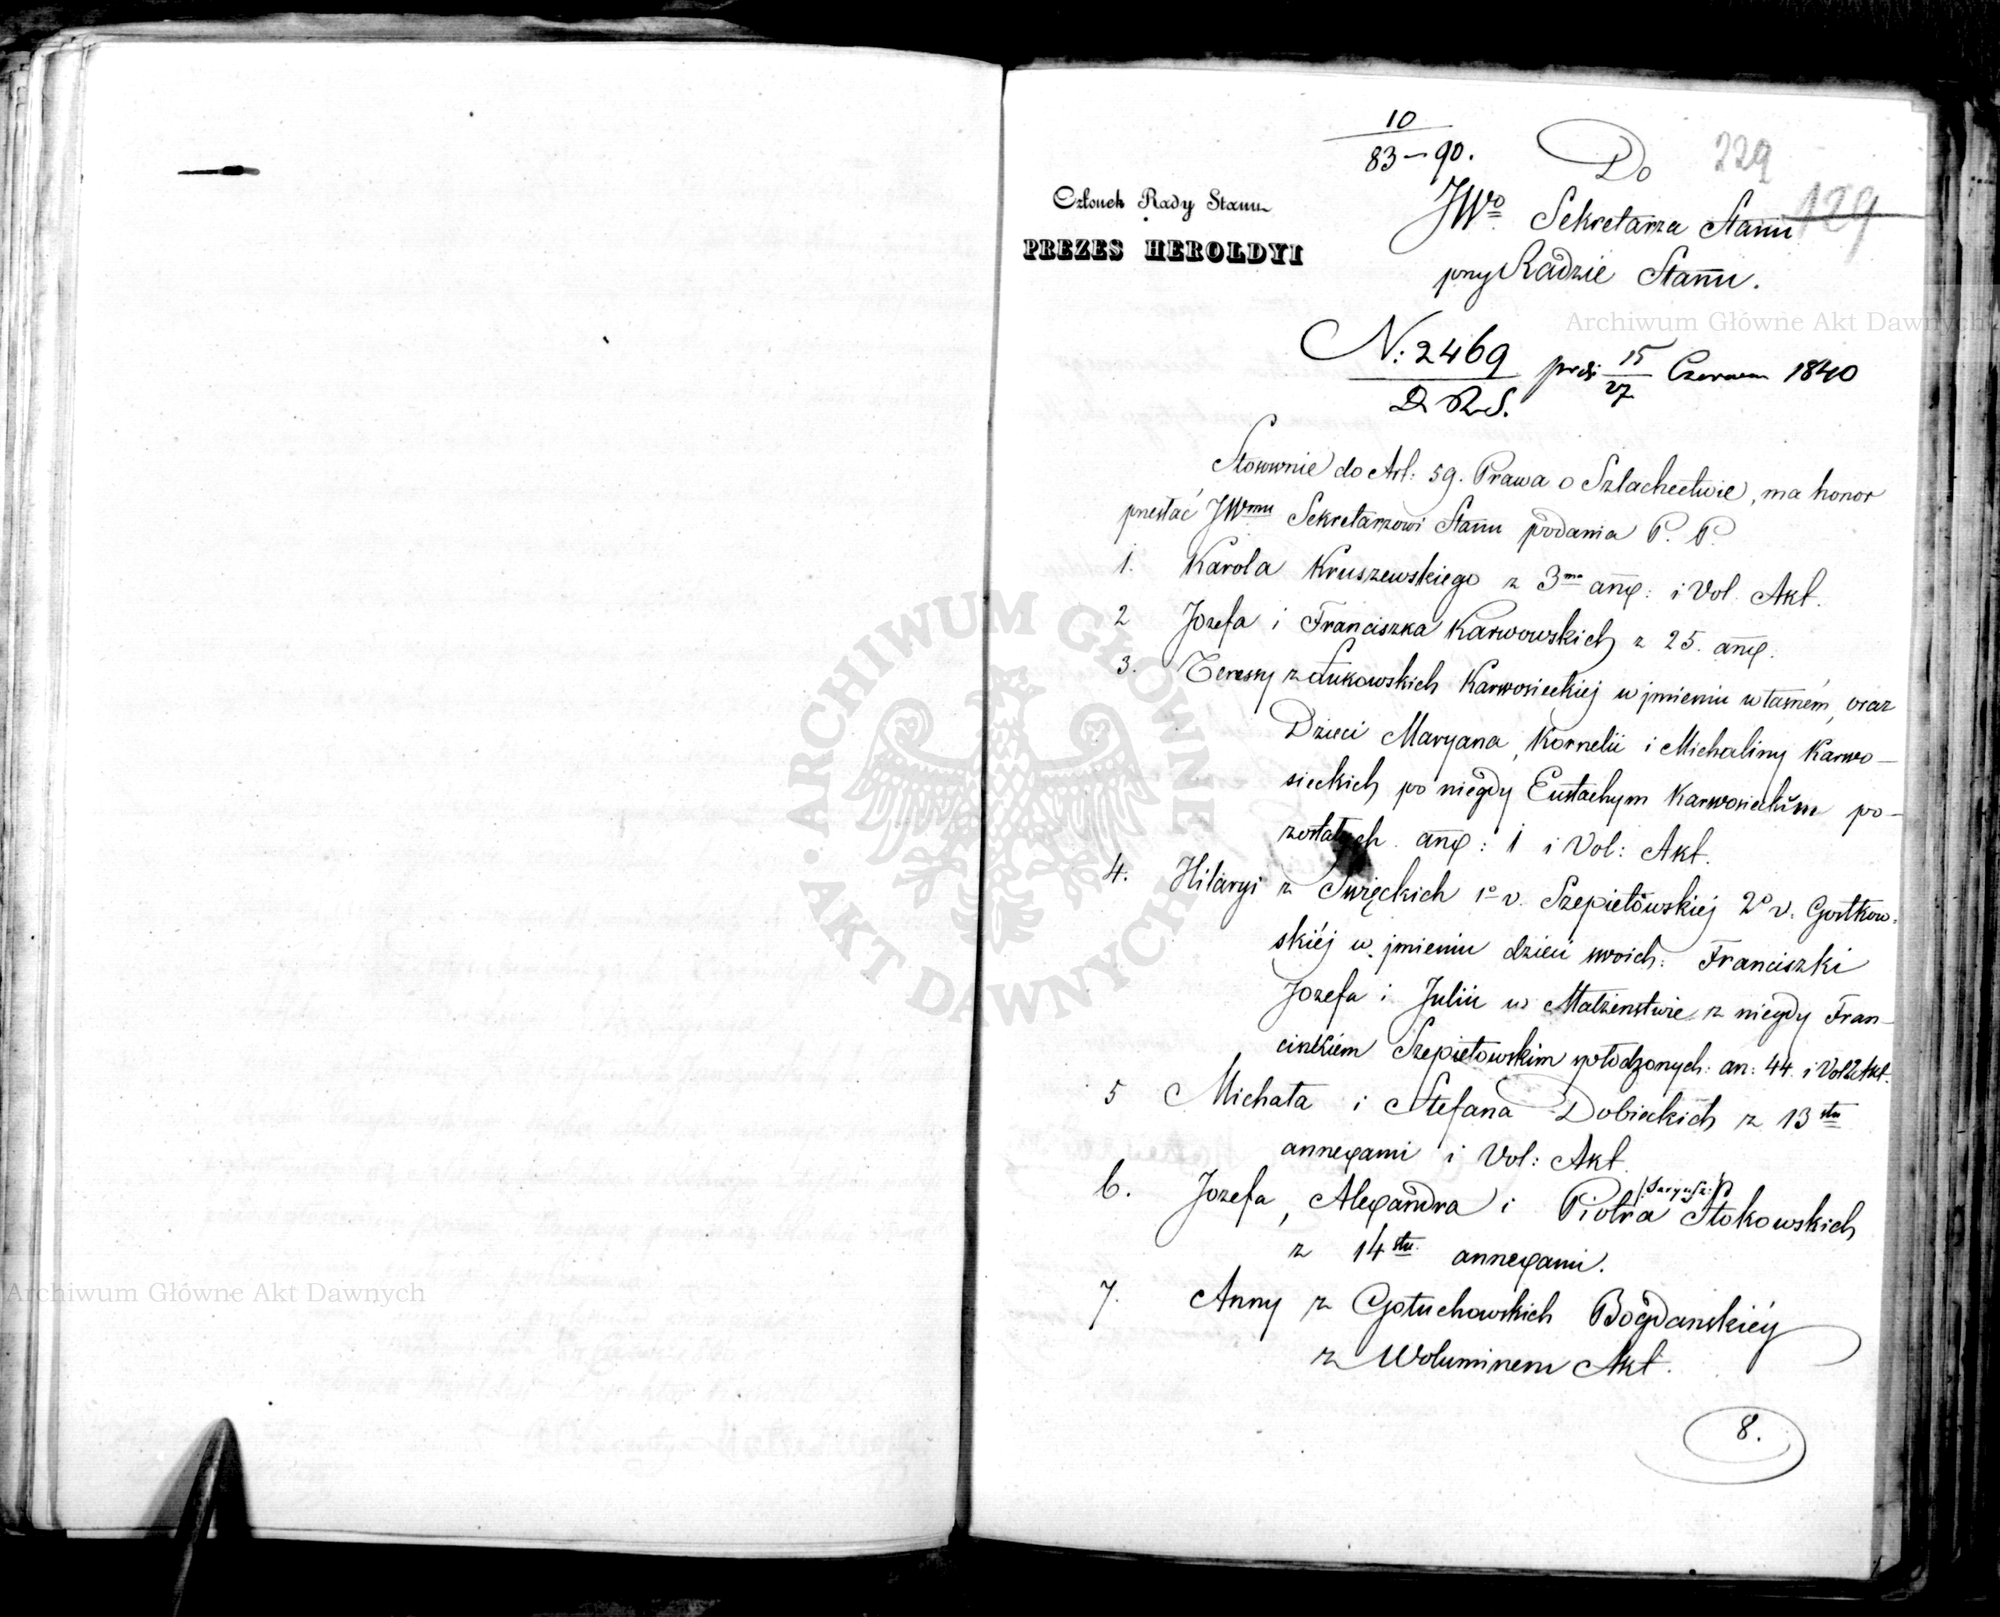 10
83–90.
Do
229
129
Członek Rady Stanu
PREZES HEROLDYI
JWo Sekretarza Stanu
przy Radzie Stanu.
N: 2469 15/27 Czerwca 1840
D. R. S.
Stosownie do Art: 59. Prawa o Szlachectwie, ma honor
przesłać JWmu Sekretarzowi Stanu podania P. P.
1. Karola Kruszewskiego z 3ma anx: i Vol. Akt.
2 Jozefa i Franciszka Karwowskich z 25. anx.
3. Teressy z Łukowskich Karwosieckiej w jmieniu własnem, oraz
Dzieci Maryana, Kornelii i Michaliny Karwo-
sieckich po niegdy Eustachym Karwosieckim po-
zostałych. anx: 1 i Vol: Akt.
4. Hilaryi z Swięckich 1o v. Szepietowskiej 2o v. Gostkow-
skiéj w jmieniu dzieci swoich: Franciszki
Jozefa i Julii w Małżenstwie z niegdy Fran-
ciszkiem Szepietowskim spłodzonych: an: 44. i Vol: Akt.
5 Michała i Stefana Dobieckich z 13stu
annexami i Vol: Akt.
6. Jozefa, Alexandra i Piotra Stokowskich
z 14stu annexami.
7. Anny z Gołuchowskich Bogdanskiéy
z Woluminem Akt.
8.
Archiwum Główne Akt Dawnych
Archiwum Główne Akt Dawnych
ARCHIWUM GŁÓWNE • AKT DAWNYCH •